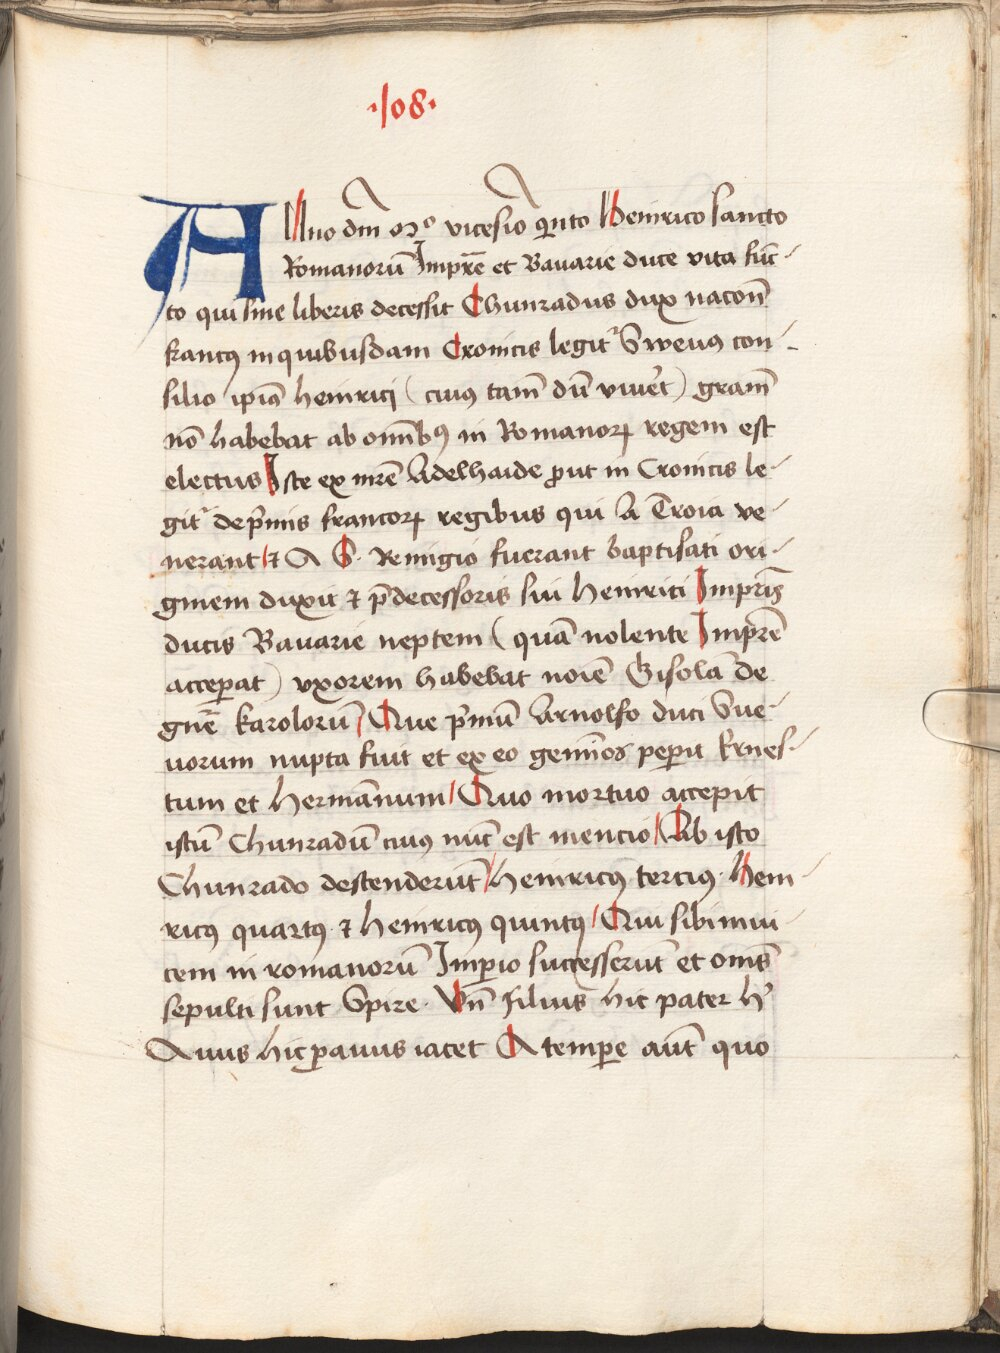 ·108·
ANno dm̄ Mº vicesīo q̄nto Heinrico sancto
Romanorū Impr̄e et Bavarie duce vita fūc-
to qui sine liberis decessit Chunradus dux nacōn̄
francꝰ in quibusdam Cronicis legit᷑ Swevꝰ con-
silio ip̄iꝰ heinrici (cuiꝰ tam̄ dū viv̓et) gram̄
nō habebat ab omībꝰ in Romanoꝝ regem est
electus Iste ex mr̄e Adelhaide ꝓut in Cronicis le-
git᷑ de p̄mis francoꝝ regibus qui a Troia ve-
nerant ⁊ A S. Remigio fuerant baptisati ori-
ginem duxit ⁊ p̄decessoris sui Heinrici Impr̄is
ducis Bavarie neptem (quā nolente Impr̄e
acceꝑat) uxorem habebat noīe Gisolā de
gn̄e karolorū Que p̄mū Arnolfo duci Sue-
uorum nupta fuit et ex eo gemīos peꝑit Ernes-
tum et Hermānum Quo mortuo accepit
istū Chunradū cuiꝰ nūc est mencio Ab isto
Chunrado descenderūt heinricꝰ terciꝰ. Hein-
ricꝰ quartꝰ ⁊ Heinricꝰ quintꝰ Qui sibi invi-
cem in romanorū Imꝑio successerūt et om̄s
sepulti sunt Spire. Vn̄ Filius hic pater h̓
Auus hic ꝓauus iacet A temꝑe aūt quo